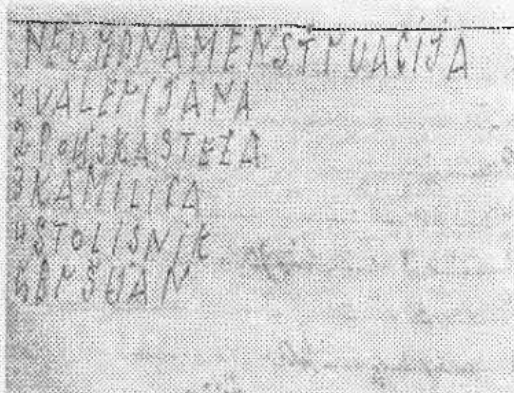 NEURDNAMENSTRUACIJA
1 VALERIJANA
2 POLJSKASTEZA
3 KAMILICA
4 STOLISNIK
5 BRŠLJAN